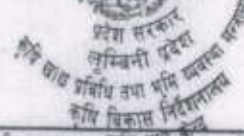 प्रदेश सरकार
लुम्बिनी प्रदेश
कृषि खाद्य प्रविधि तथा भूमि व्यवस्था
कृषि विकास निर्देशनालय